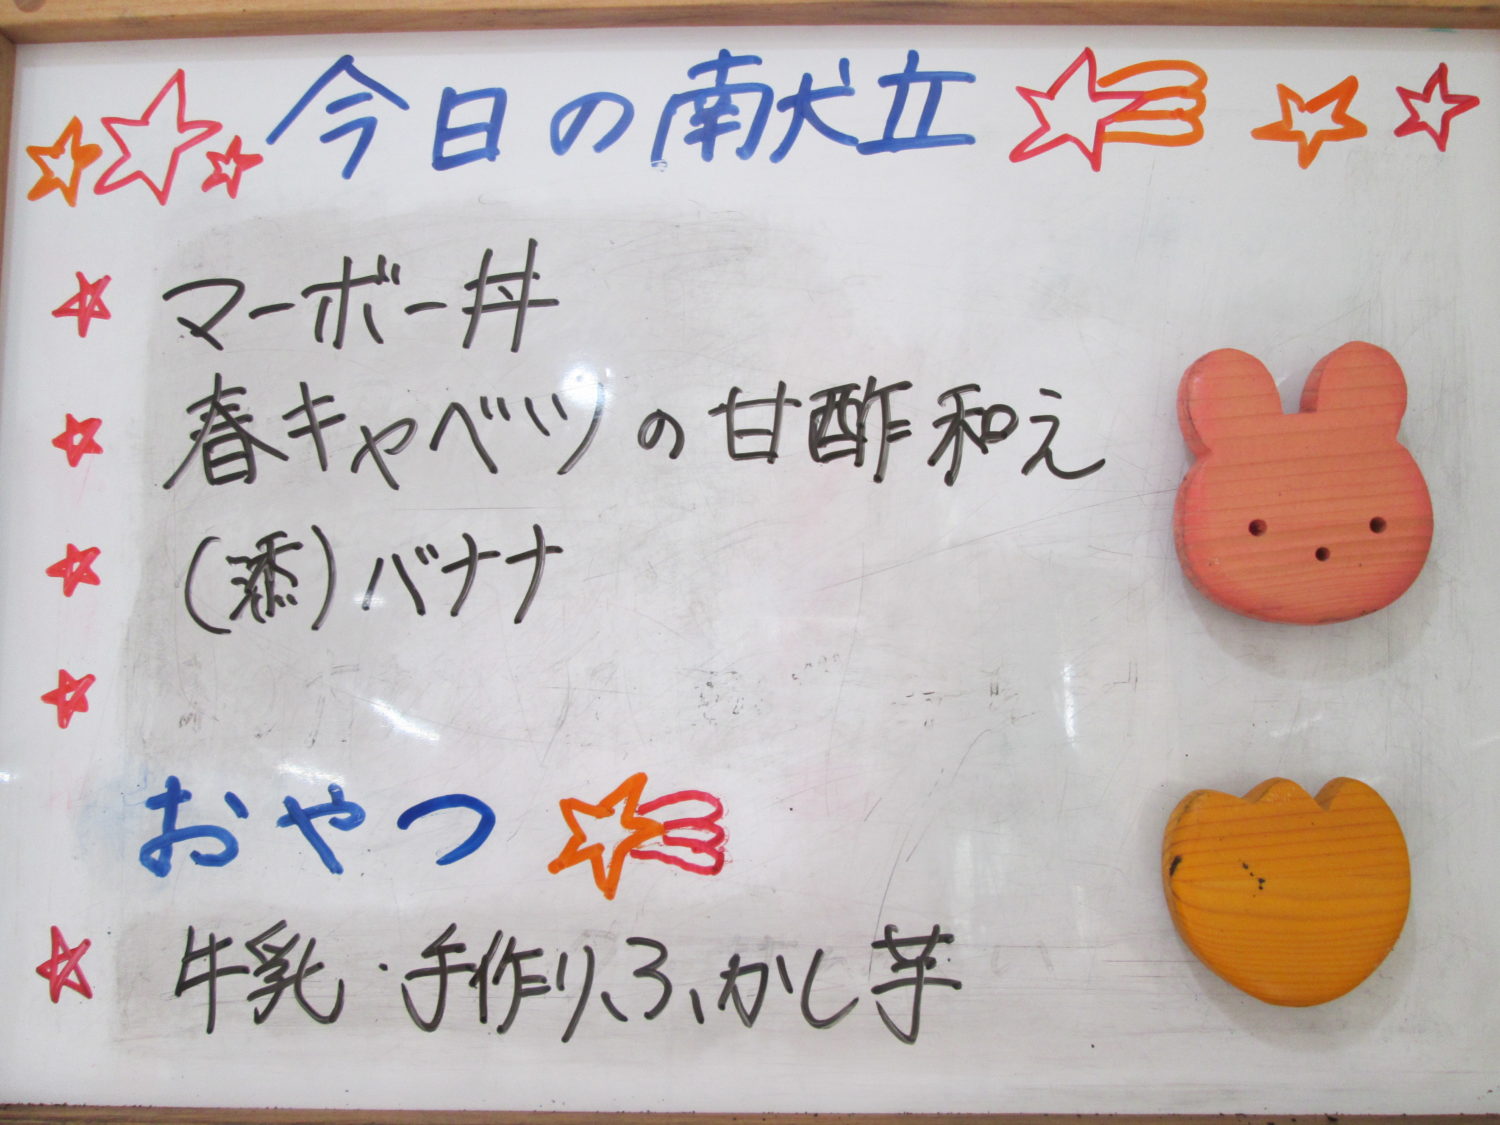 今日の献立
マーボー丼
春キャベツの甘酢和え
(添)バナナ
おやつ
牛乳・手作りふかし芋